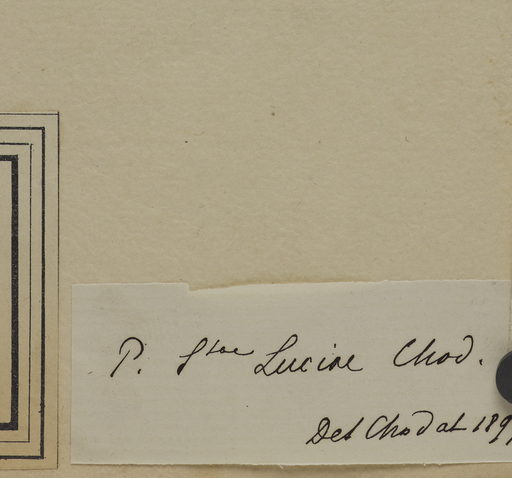 P. Stae Luciae Chod.
Det Chodat 189